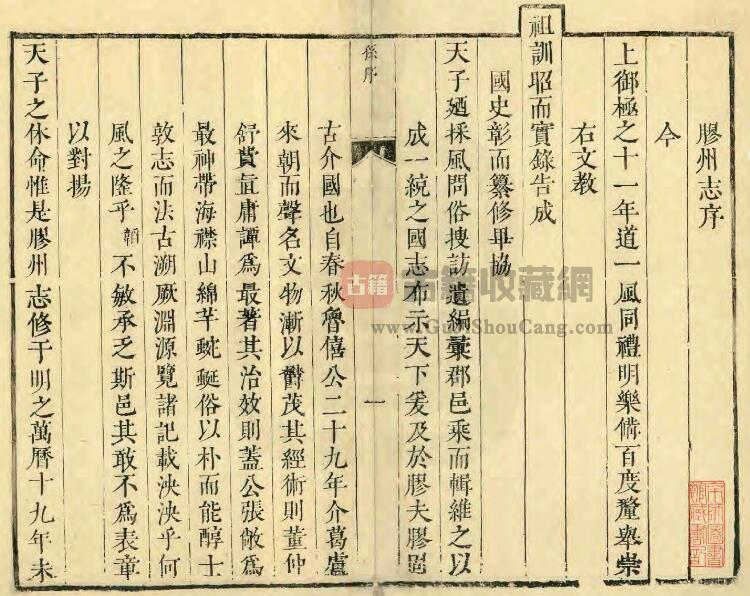 膠州志序
今
上御極之十一年道一風同禮明樂備百度釐舉崇
右文教
祖訓昭而實錄告成
國史彰而纂修畢協
天子廼採風問俗搜訪遺編彙郡邑乘而輯維之以
成一統之國志布示天下爰及於膠夫膠
孫序
一
古介國也自春秋魯僖公二十九年介葛盧
來朝而聲名文物漸以鬱茂其經術則董仲
舒費直庸譚爲最著其治效則蓋公張敞爲
最神帶海襟山綿芊蜿蜒俗以朴而能醇士
敦志而法古溯厥淵源覽諸記載泱泱乎何
風之隆乎不敏承乏斯邑其敢不爲表章
以對揚
天子之休命惟是膠州志修于明之萬曆十九年未
京師圖書
館藏書
古籍
古籍收藏網
www.GuJiShouCang.com